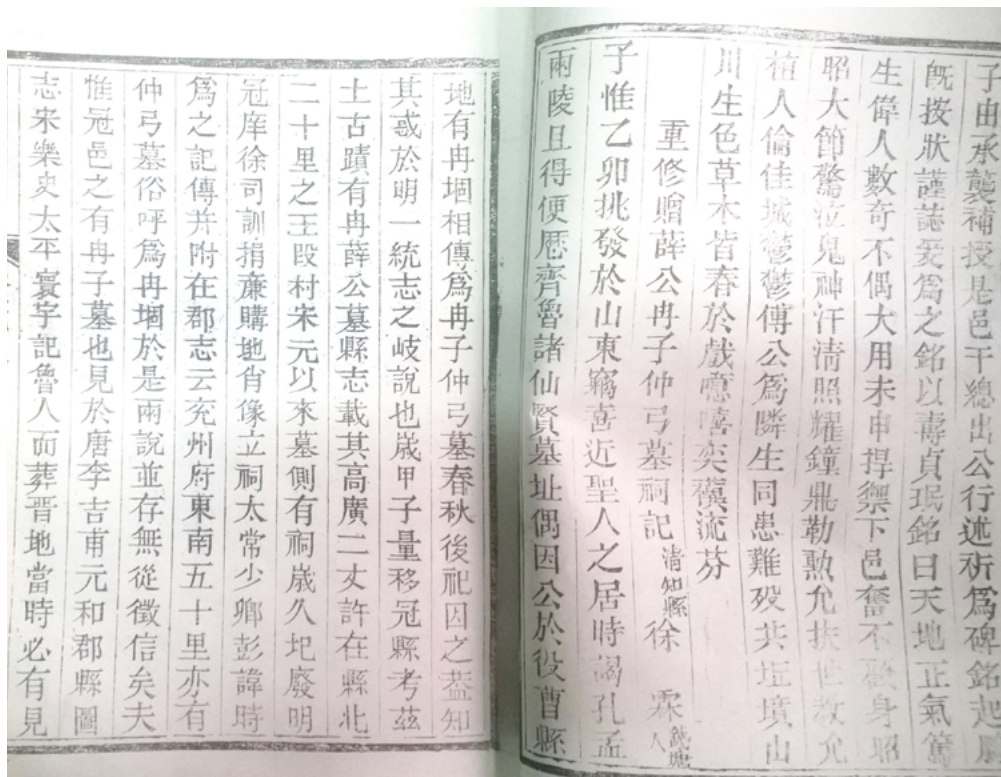 子由承襲補授是邑千總出公行述祈為碑銘起鳳
旣按狀謹誌爰為之銘以壽貞珉銘曰天地正氣篤
生偉人數奇不偶大用未申捍禦下邑奮不顧身昭
昭大節驚泣鬼神汗清照耀鐘鼎勒勲允扶世教允
植人倫佳城鬱鬱傳公為隣生同患難歿共坵墳山
川生色草木皆春於戲噫嘻奕禩流芬
重修贈薛公冉子仲弓墓祠記 清知縣 徐 霖 錢塘人
子惟乙卯挑發於山東竊喜近聖人之居時謁孔孟
兩陵且得便歷齊魯諸仙賢墓址偶因公於役曹縣
地有冉堌相傳為冉子仲弓墓春秋後祀因之葢知
其惑於明一統志之岐說也歲甲子量移冠縣考茲
土古蹟有冉薛公墓縣志載其高廣二丈許在縣北
二十里之王段村宋元以來墓側有祠歲久圯廢明
冠庠徐司訓捐亷購地肖像立祠太常少卿彭諱時
為之記傳并附在郡志云兖州府東南五十里亦有
仲弓墓俗呼為冉堌於是兩說並存無從徵信矣夫
惟冠邑之有冉子墓也見於唐李吉甫元和郡縣圖
志宋樂史太平寰宇記魯人而葬晋地當時必有見